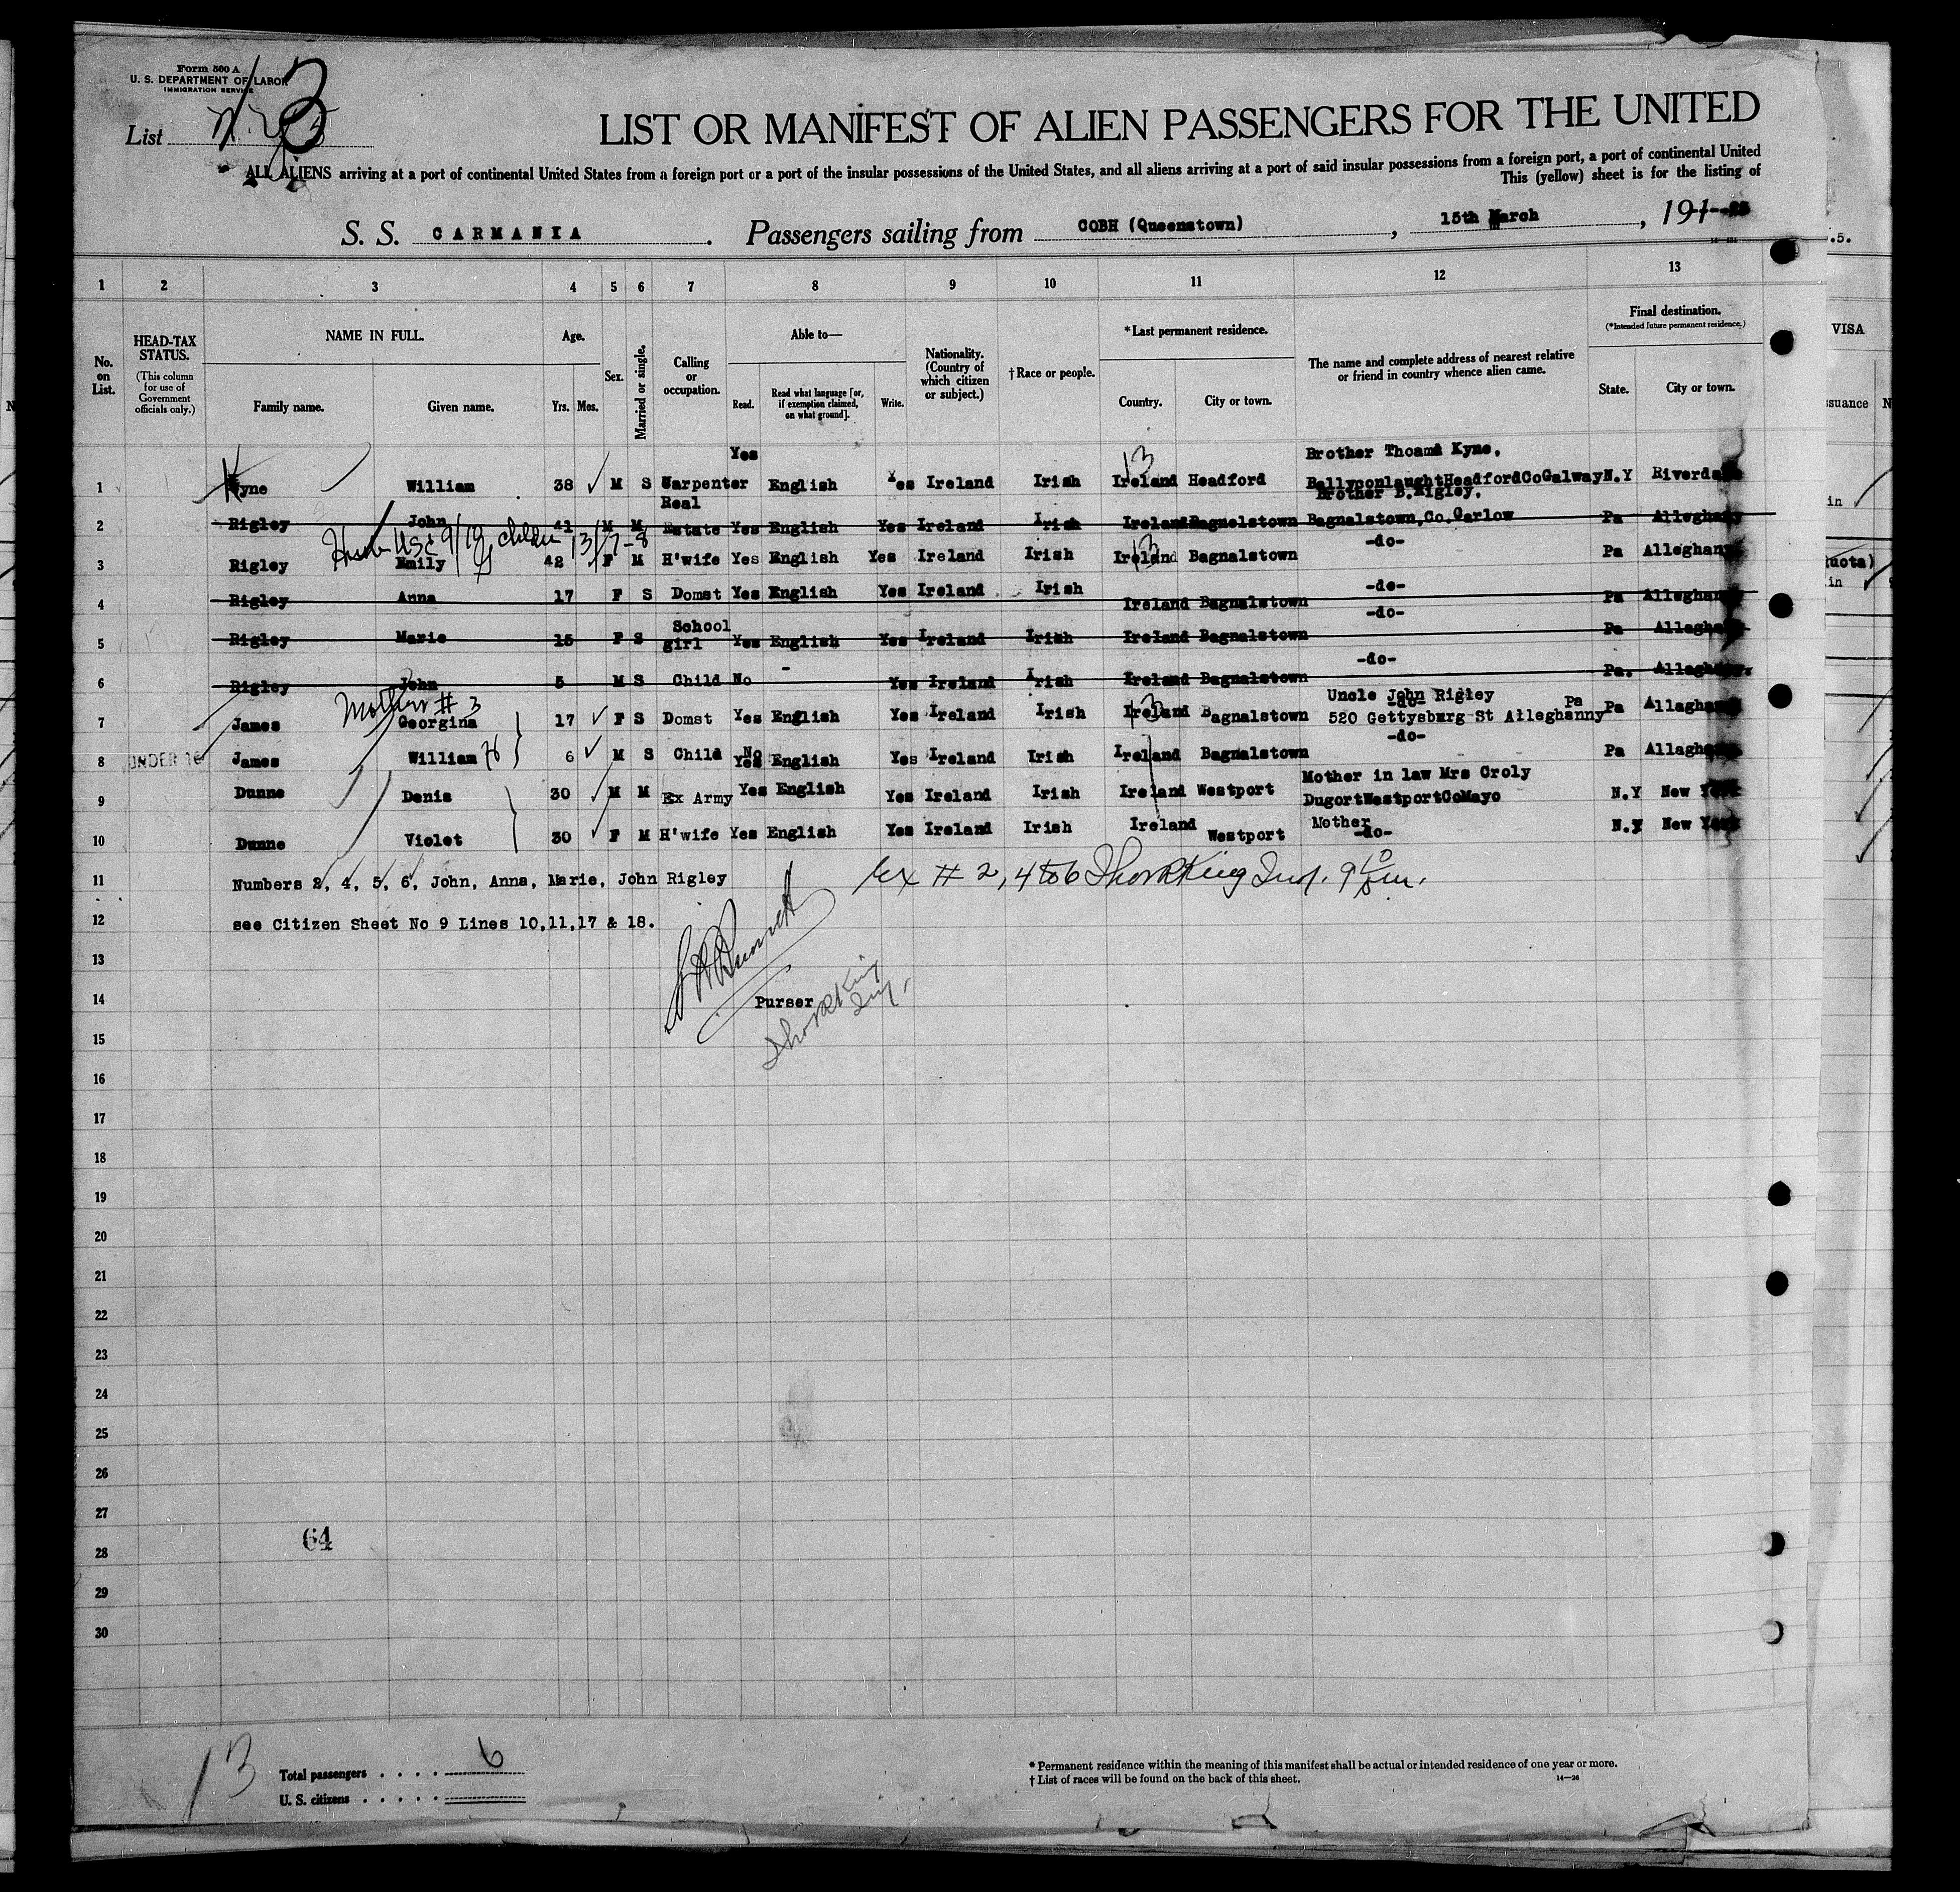 Form 500 A
U. S. DEPARTMENT OF LABOR
IMMIGRATION SERVICE
List
13
LIST OR MANIFEST OF ALIEN PASSENGERS FOR THE UNITED
ALL ALIENS arriving at a port of continental United States from a foreign port or a port of the insular possessions of the United States, and all aliens arriving at a port of said insular possessions from a foreign port, a port of continental United
This (yellow) sheet is for the listing of
S. S. CARMANIA . Passengers sailing from COBH (Queenstown) , 15th March , 191
1 2 3 4 5 6 7 8 9 10 11 12 13
No. on List.
HEAD-TAX STATUS.
(This column for use of Government officials only.)
NAME IN FULL.
Family name. Given name.
Age.
Yrs. Mos.
Sex.
Married or single.
Calling or occupation.
Able to—
Read. Read what language [or, if exemption claimed, on what ground]. Write.
Nationality. (Country of which citizen or subject.)
†Race or people.
*Last permanent residence.
Country. City or town.
The name and complete address of nearest relative or friend in country whence alien came.
Final destination.
(*Intended future permanent residence.)
State. City or town.
VISA
Yes Brother Thoams Kyne,
1 Kyne William 38 M S Carpenter English Yes Ireland Irish Ireland Headford BallyconlaughtHeadfordCoGalway N.Y Riverda
Real Brother B.Rigley,
2 Rigley John 41 M M Estate Yes English Yes Ireland Irish Ireland Bagnelstown Bagnalstown,Co.Carlow Pa Alleghany
children 13/7-8
-do-
3 Rigley Emily 42 F M H'wife Yes English Yes Ireland Irish Ireland Bagnalstown Pa Alleghan
4 Rigley Anna 17 F S Domst Yes English Yes Ireland Irish Ireland Bagnalstown -do- Pa Alleghan
School -do-
5 Rigley Marie 15 F S girl Yes English Yes Ireland Irish Ireland Bagnalstown Pa Allegha
-do-
6 Rigley John 5 M S Child No - Yes Ireland Irish Ireland Bagnalstown Pa. Alleghany.
Mother # 3
Uncle John Rigley
-do- Pa
7 James Georgina 17 F S Domst Yes English Yes Ireland Irish Ireland Bagnalstown 520 Gettysburg St Alleghanny Pa Allagha
No -do-
8 UNDER 16 James William 6 M S Child Yes English Yes Ireland Irish Ireland Bagnalstown Pa Allagh
Mother in law Mrs Croly
9 Dunne Denis 30 M M Ex Army Yes English Yes Ireland Irish Ireland Westport DugortWestportCoMayo N.Y New York
Mother
10 Dunne Violet 30 F M H'wife Yes English Yes Ireland Irish Ireland Westport -do- N.Y New York
11 Numbers 2, 4, 5, 6, John, Anna, Marie, John Rigley
12 see Citizen Sheet No 9 Lines 10,11,17 & 18.
13
14 Purser
15
16
17
18
19
20
21
22
23
24
25
26
27
64
28
29
30
13
Total passengers . . . . 6
U. S. citizens . . . . .
* Permanent residence within the meaning of this manifest shall be actual or intended residence of one year or more.
† List of races will be found on the back of this sheet. 14—26